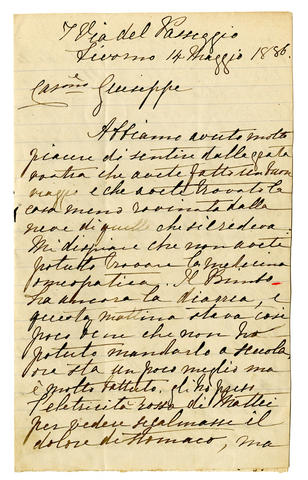 7 Via del Passeggio
Livorno 14 Maggio 1886.
Carsmo Giuseppe
Abbiamo avuto molto
piacere di sentire dalla grata
vostra che avete fatto un buon
viaggio e che avete trovato la
casa meno rovinata dalla
neve di quello che si credeva.
Mi dispiace che non avete
potuto trovare la medicina
omeopatica. Il Bimbo
ha ancora la diarea, e
questa mattina stava così
poco bene che non ho
potuto mandarlo a scuola
ora sta un poco meglio ma
è molto abbattuto. Gli
l'eletricità rossa di Mattei
per vedere se calmasse il
dolore di stomaco, ma